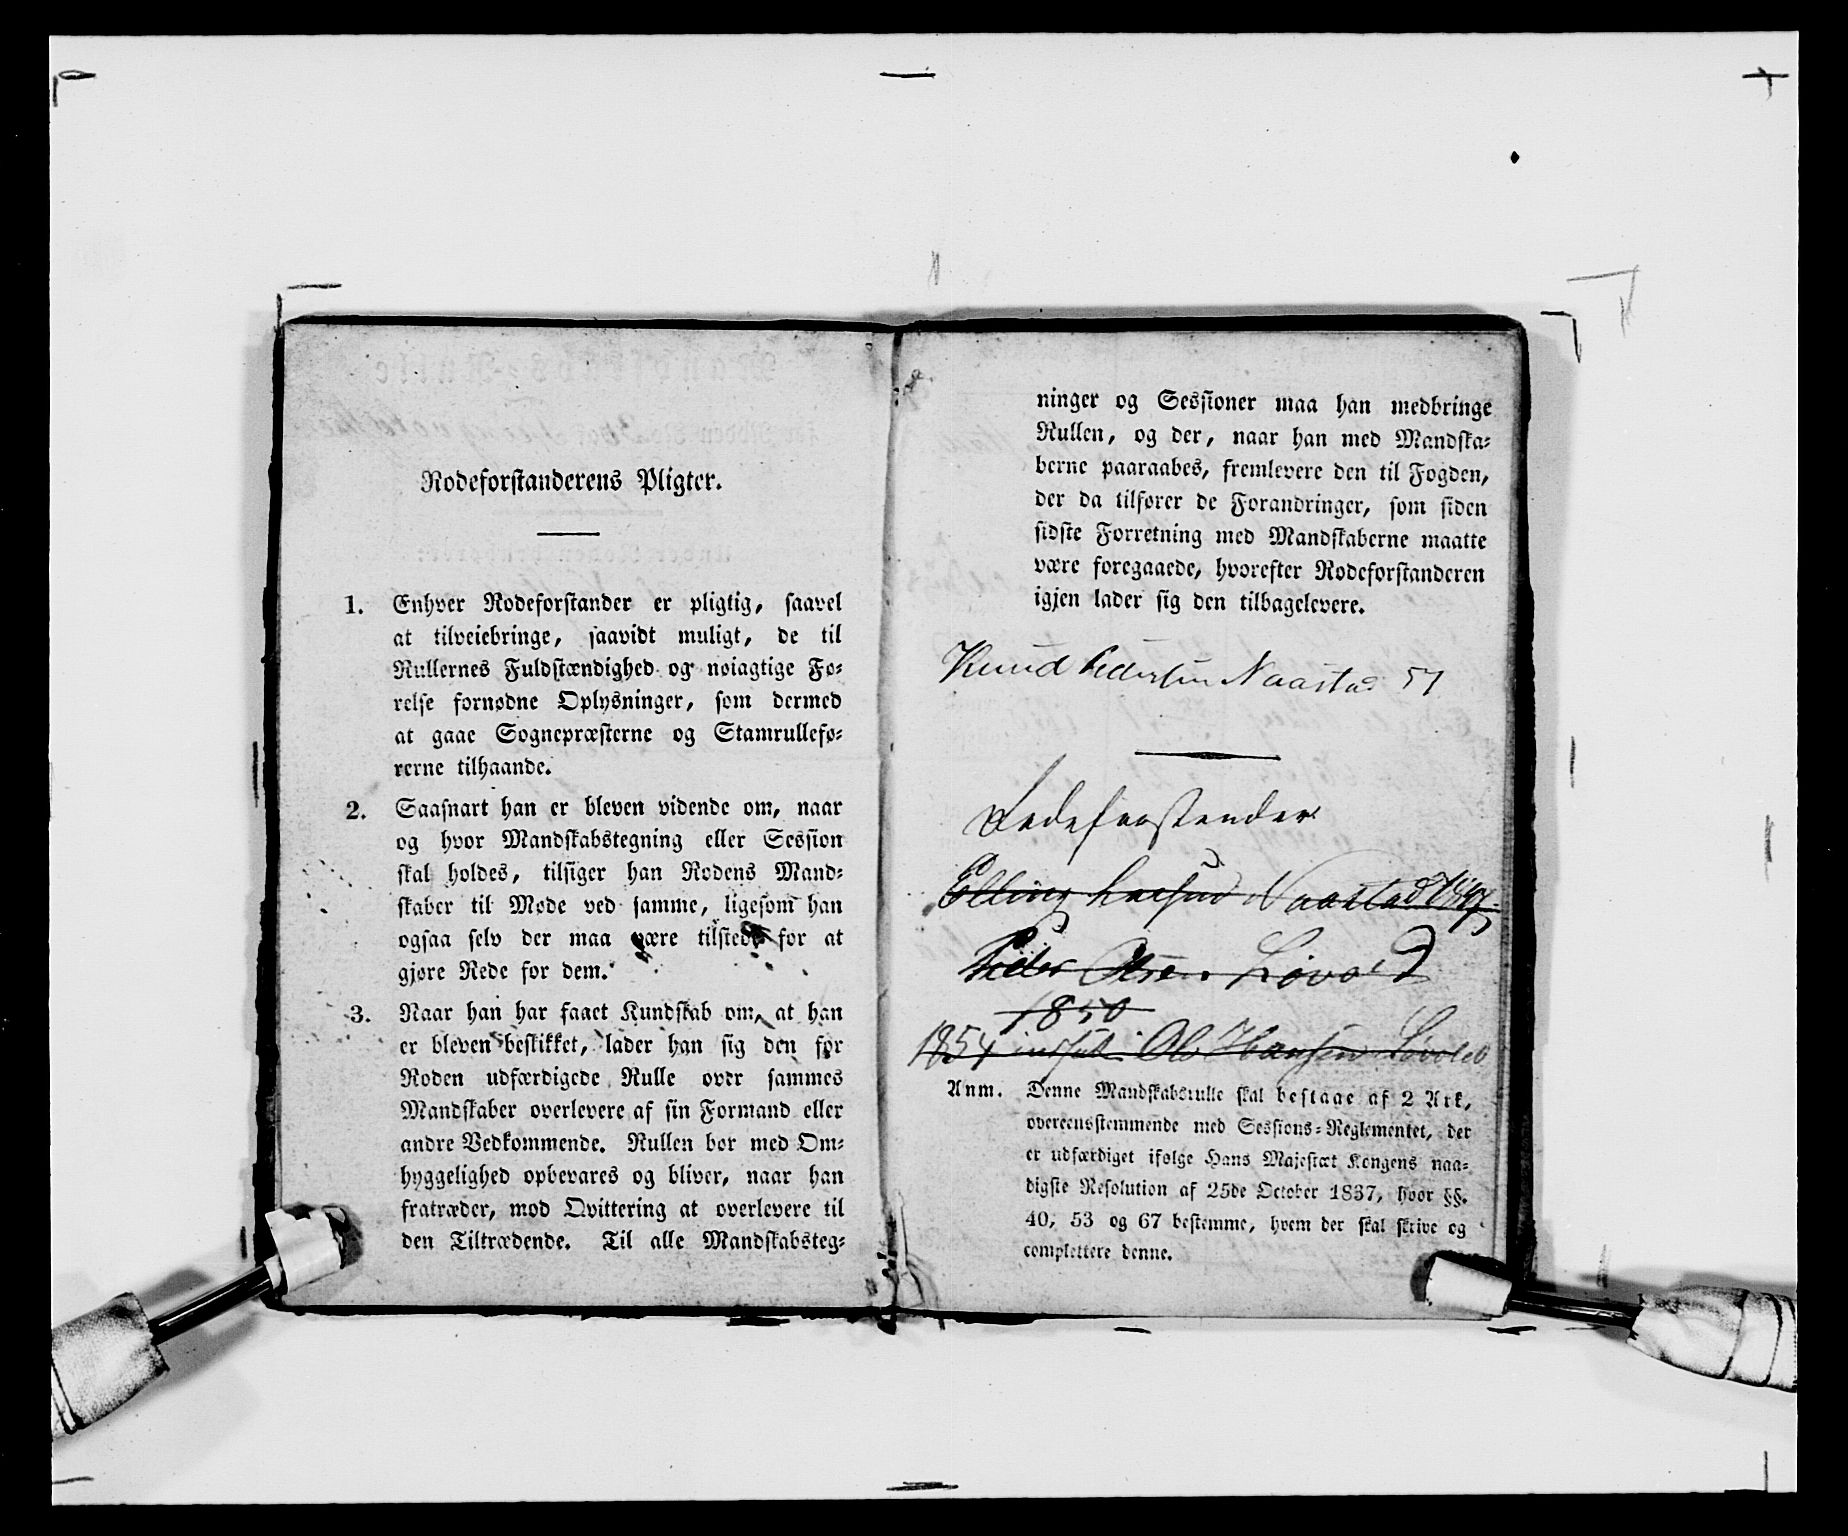 Rodeforstanderens Pligter.
1. Enhver Rodeforstander er pligtig, saavel
at tilveiebringe, saavidt muligt, de til
Rullernes Fuldstændighed og nøiagtige Fø-
relse fornødne Oplysninger, som dermed
at gaae Sognepræsterne og Stamrullefø-
rerne tilhaande.
2. Saasnart han er bleven vidende om, naar
og hvor Mandskabstegning eller Session
skal holdes, tilsiger han Rodens Mand-
skaber til Møde ved samme, ligesom han
ogsaa selv der maa være tilstede for at
gjøre Rede for dem.
3. Naar han har faaet Kundskab om, at han
er bleven beskikket, lader han sig den for
Roden udfærdigede Rulle over sammes
Mandskaber overlevere af sin Formand eller
andre Vedkommende. Rullen bør med Om-
hyggelighed opbevares og bliver, naar han
fratræder, mod Qvittering at overlevere til
den Tiltrædende. Til alle Mandskabsteg-
ninger og Sessioner maa han medbringe
Rullen, og der, naar han med Mandska-
berne paaraabes, fremlevere den til Fogden,
der da tilfører de Forandringer, som siden
sidste Forretning med Mandskaberne maatte
være foregaaede, hvorefter Rodeforstanderen
igjen lader sig den tilbagelevere.
Knud Pedersen Naastad 57
Rodeforstander
Elling Naastad
Peder Olsen Løvold
1850
1854 Ole Hansen Løvold
Anm. Denne Mandskabsrulle skal bestaae af 2 Ark,
overeensstemmende med Sessions-Reglementet, der
er udfærdiget ifølge Hans Majestæt Kongens naa-
digste Resolution af 25de October 1837, hvor §§.
40, 53 og 67 bestemme, hvem der skal skrive og
complettere denne.